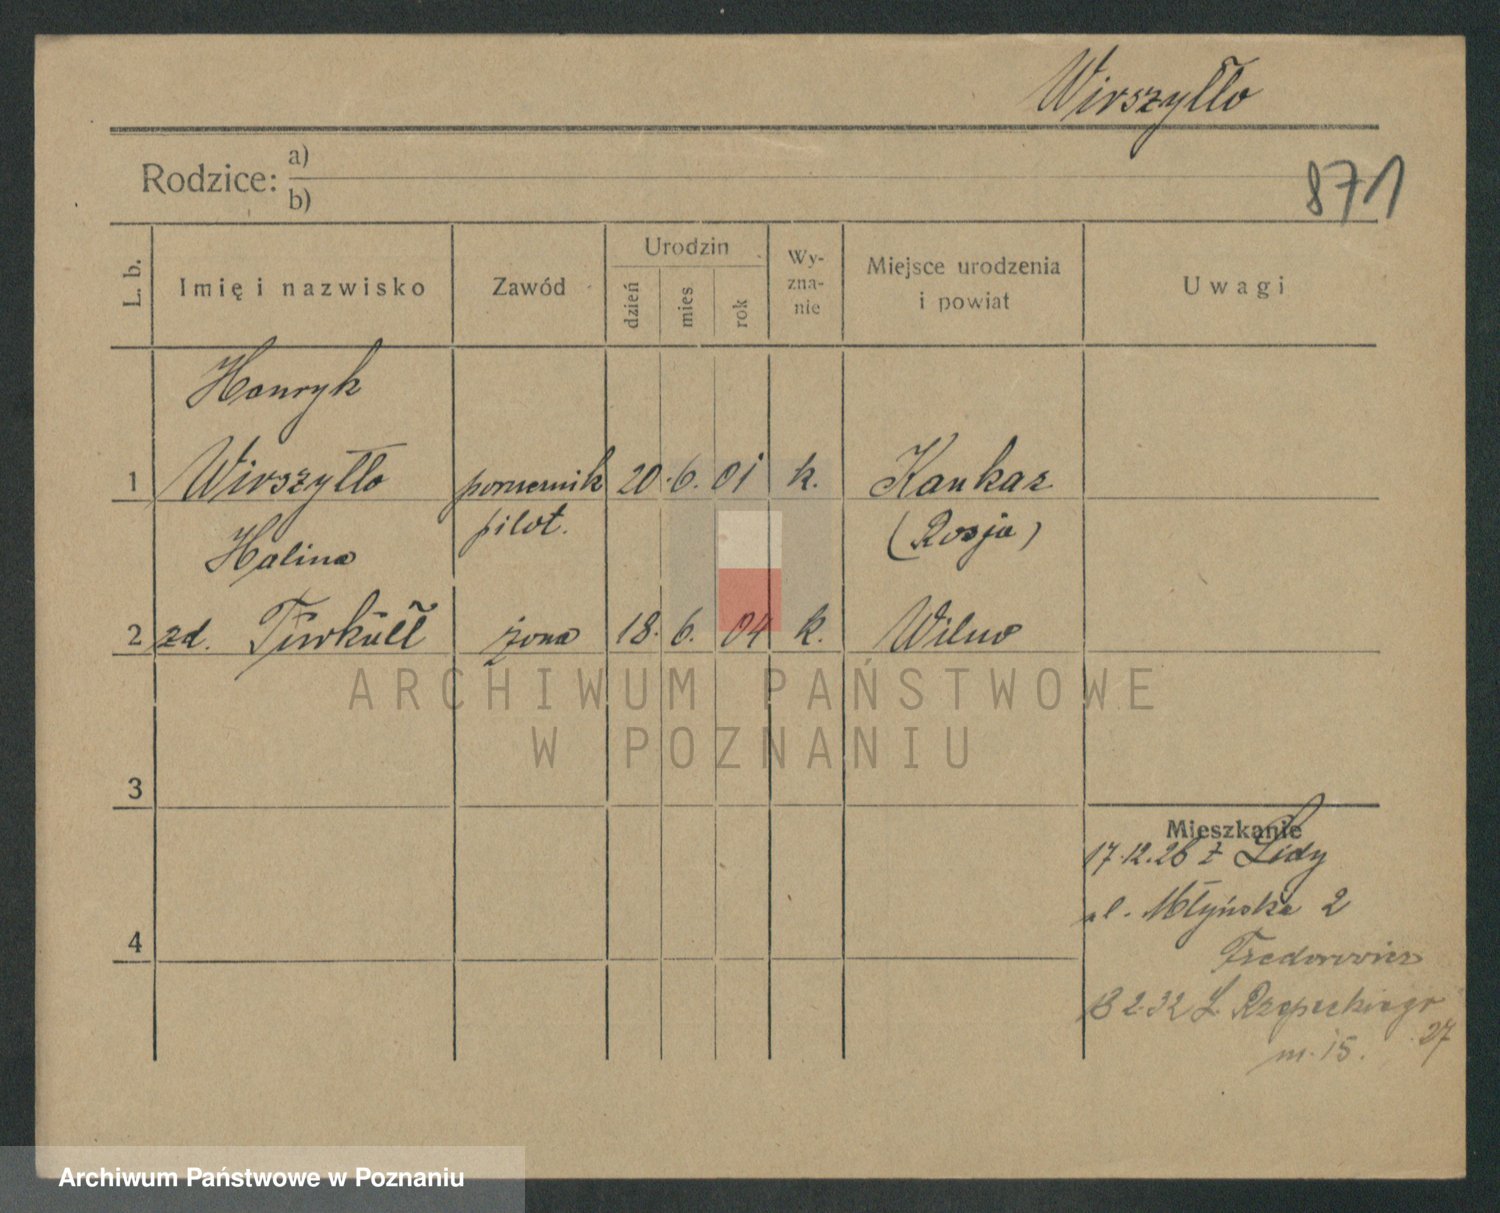 Wirszyłło
Rodzice: a)
b)
871
L. b.
Imię i nazwisko
Zawód
Urodzin
dzień
mies
rok
Wy-
zna-
nie
Miejsce urodzenia
i powiat
Uwagi
Henryk
1 Wirszyłło porucznik 20. 6. 01 k. Kaukaz
pilot. (Rosja)
Halina
2 zd. Turkułł żona 18. 6. 04 k. Wilno
ARCHIWUM PAŃSTWOWE
W POZNANIU
3
4
Mieszkanie
17.12.26 z Lidy
ul. Młyńska 2
13 2.32 L. Rzepeckiego
27
m. 15.
Archiwum Państwowe w Poznaniu